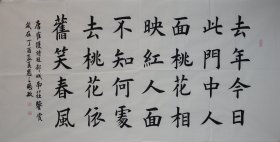 去年今日
此門中人
面桃花相
映紅人面
不知何處
去桃花依
舊笑春風
唐崔護詩題都城南莊
歲在丁酉